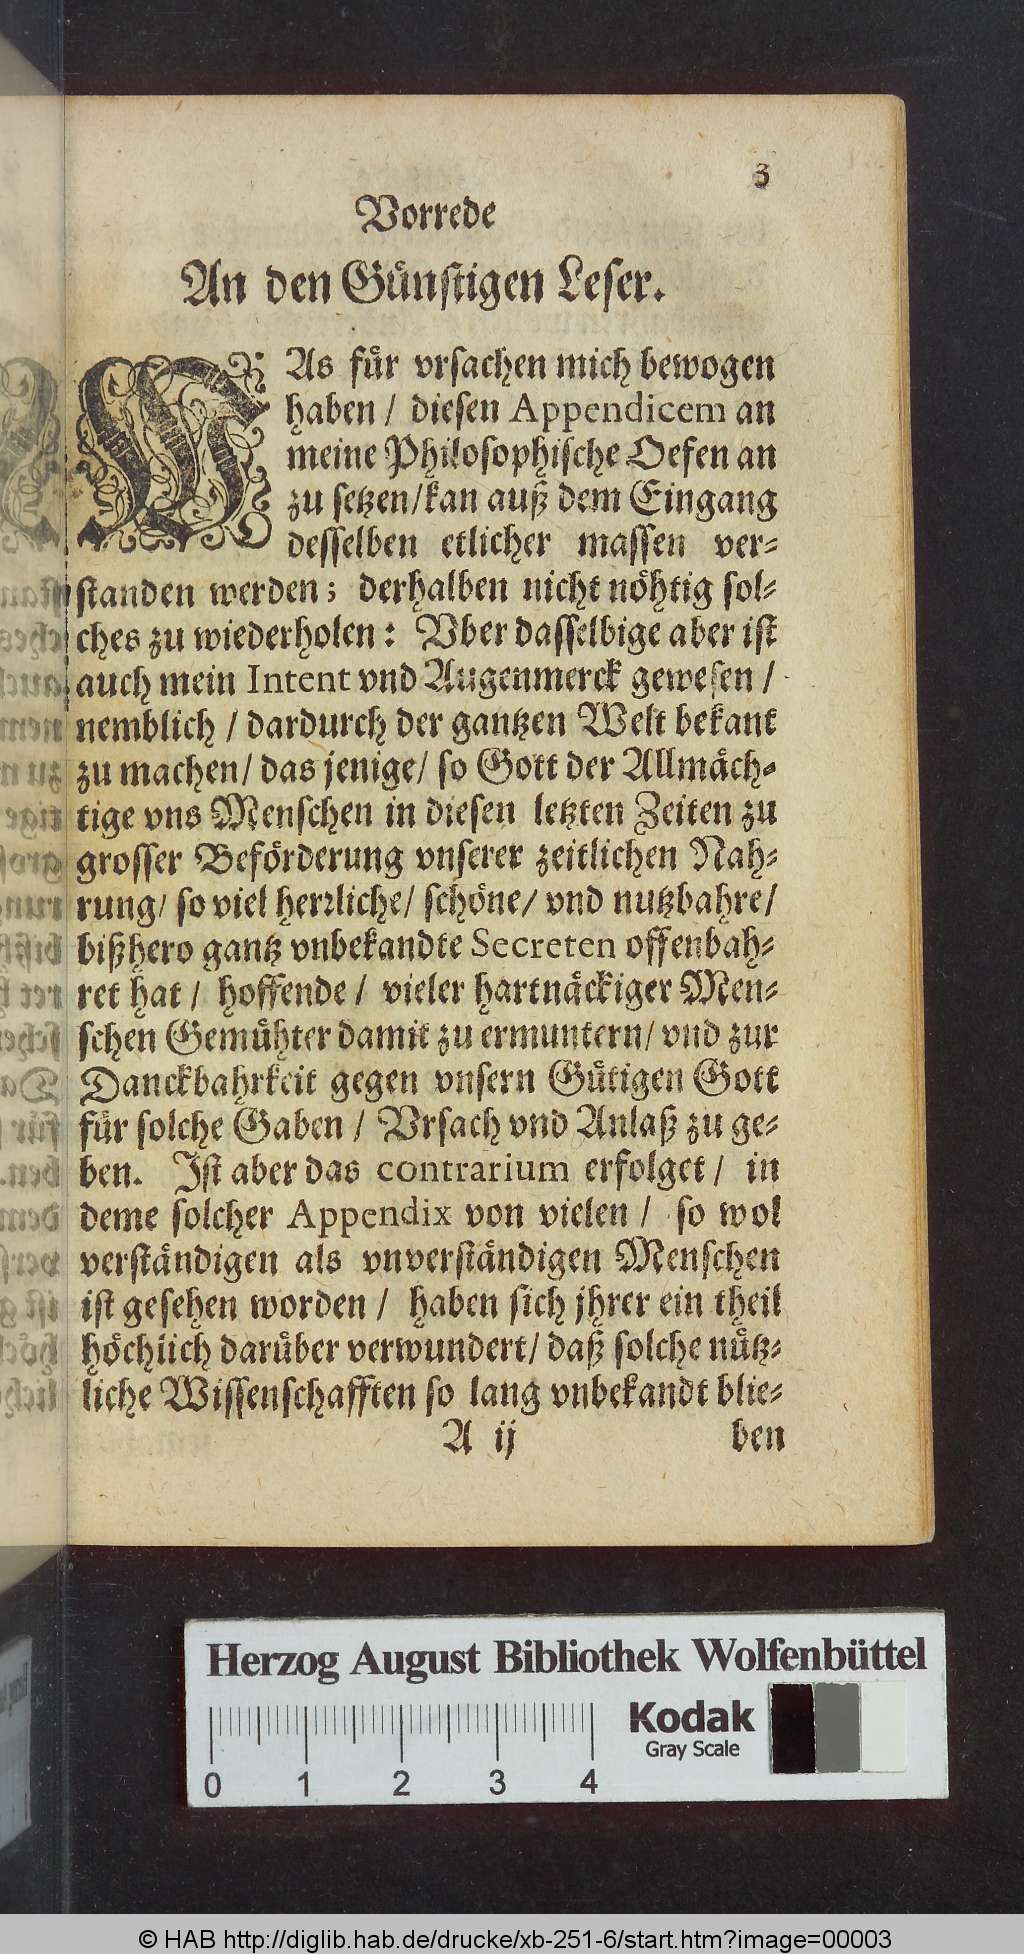 3
Vorrede
An den Günſtigen Leſer.
WAs für vrſachen mich bewogen
haben / dieſen Appendicem an
meine Philoſophiſche Oefen an
zu ſetzen/kan auß dem Eingang
deſſelben etlicher maſſen ver-
ſtanden werden; derhalben nicht nöhtig ſol-
ches zu wiederholen: Vber daſſelbige aber iſt
auch mein Intent vnd Augenmerck geweſen /
nemblich / dardurch der gantzen Welt bekant
zu machen/ das jenige/ ſo Gott der Allmäch-
tige vns Menſchen in dieſen letzten Zeiten zu
groſſer Beförderung vnſerer zeitlichen Nah-
rung/ ſo viel herꝛliche/ ſchöne/ vnd nutzbahre/
bißhero gantz vnbekandte Secreten offenbah-
ret hat / hoffende / vieler hartnäckiger Men-
ſchen Gemühter damit zu ermuntern/ vnd zur
Danckbahrkeit gegen vnſern Gütigen Gott
für ſolche Gaben / Vrſach vnd Anlaß zu ge-
ben. Iſt aber das contrarium erfolget / in
deme ſolcher Appendix von vielen / ſo wol
verſtändigen als vnverſtändigen Menſchen
iſt geſehen worden / haben ſich jhrer ein theil
höchlich darüber verwundert/ daß ſolche nütz-
liche Wiſſenſchafften ſo lang vnbekandt blie-
A ij ben
Herzog August Bibliothek Wolfenbüttel
Kodak
Gray Scale
0 1 2 3 4
© HAB http://diglib.hab.de/drucke/xb-251-6/start.htm?image=00003